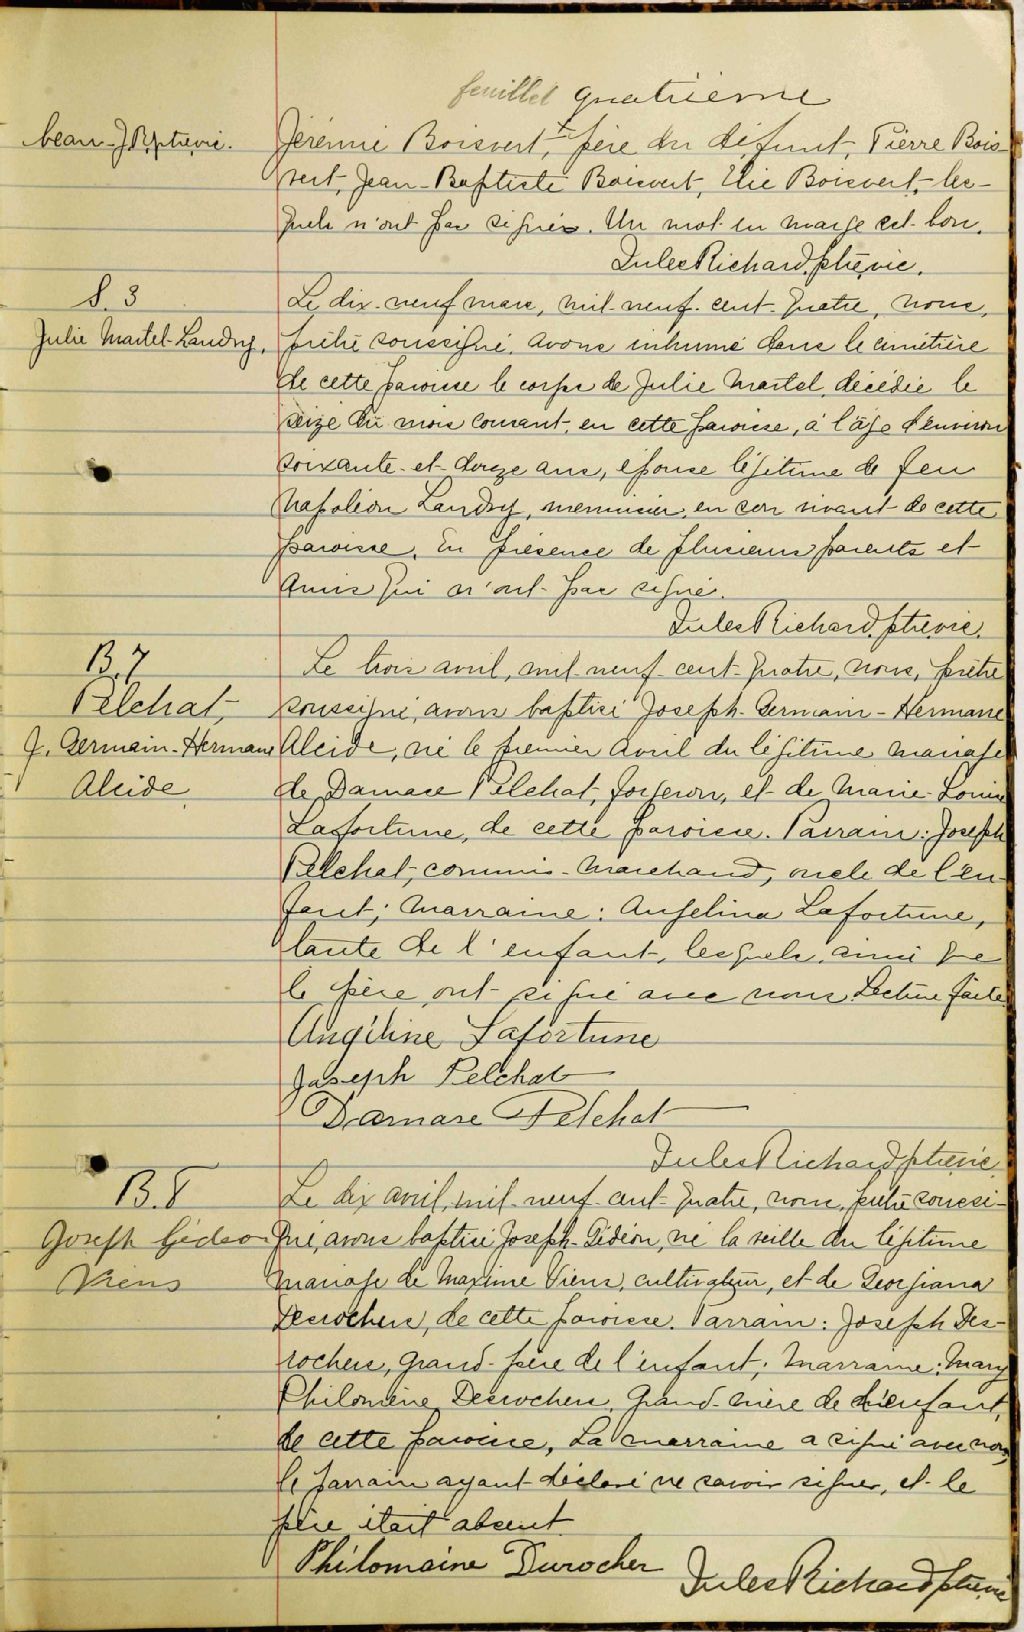 feuillet quatrième
beau-J.R.ptre,vic.
Jérémie Boisvert, père du défunt, Pierre Bois-
vert, Jean-Baptiste Boisvert, Elie Boisvert, les-
quels n'ont pas signés. Un mot en marge est bon.
Jules Richard,ptre,vic.
S. 3
Julie Martel-Landry.
Le dix-neuf mars, mil-neuf-cent-quatre, nous,
prêtre soussigné, avons inhumé dans le cimétière
de cette paroisse le corps de Julie Martel, décédée le
seize du mois courant, en cette paroisse, à l'âge d'environ
soixante-et-douze ans, épouse légitime de feu
Napoléon Landry, menuisier, en son vivant de cette
paroisse. En présence de plusieurs parents et
amis qui n'ont pas signé.
Jules Richard,ptre,vic.
B.7
Pelchat,
J. Germain-Hermane
Alcide
Le trois avril, mil-neuf-cent-quatre, nous, prêtre
soussigné, avons baptisé Joseph-Germain-Hermane
Alcide, né le premier avril du légitime mariage
de Damase Pelchat, forgeron, et de Marie-Louise
Lafortune, de cette paroisse. Parrain: Joseph
Pelchat, commis-marchand, oncle de l'en-
fant; marraine: Angelina Lafortune,
tante de l'enfant, lesquels, ainsi que
le père, ont signé avec nous. Lecture faite.
Angéline Lafortune
Joseph Pelchat
Damase Pelchat
Jules Richard,ptre,vic.
B.8
Joseph Gédéon
Viens
Le dix avril, mil-neuf-cent-quatre, nous, prêtre soussi-
gné, avons baptisé Joseph-Gédéon, né la veille du légitime
mariage de Maxime Viens, cultivateur, et de Georgiana
Desrochers, de cette paroisse. Parrain: Joseph Des-
rochers, grand-père de l'enfant; marraine: Mary
Philomène Desrochers, grand-mère de l'enfant,
de cette paroisse, La marraine a signé avec nous,
le parrain ayant déclaré ne savoir signer, et le
père était absent.
Philomaine Durocher
Jules Richard,ptre,vic.